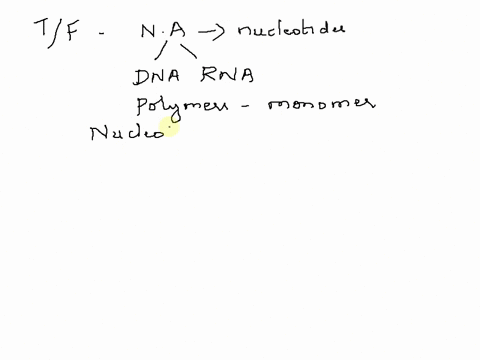 T/F - N.A → nucleotides
DNA RNA
Polymers - monomer
Nucleo